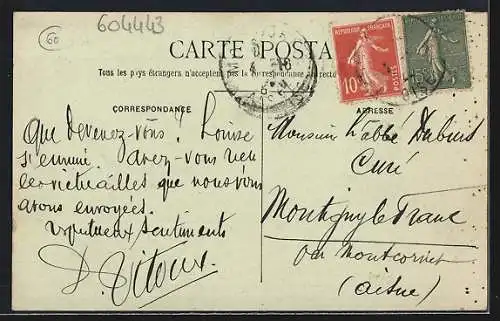 604443
60
CARTE POSTA
Tous les pays étrangers n'acceptent pas la correspondance au recto
CORRESPONDANCE
ADRESSE
REPUBLIQUE FRANÇAISE
10
POSTES
Que devenez-vous! Louise
s'ennuie. avez-vous reçu
les victuailles que nous vous
avons envoyées.
Respectueux sentiments
D. Vitoux
Monsieur l'abbé Dubuis
Curé
Montigny le Franc
par Montcornet
(Aisne)